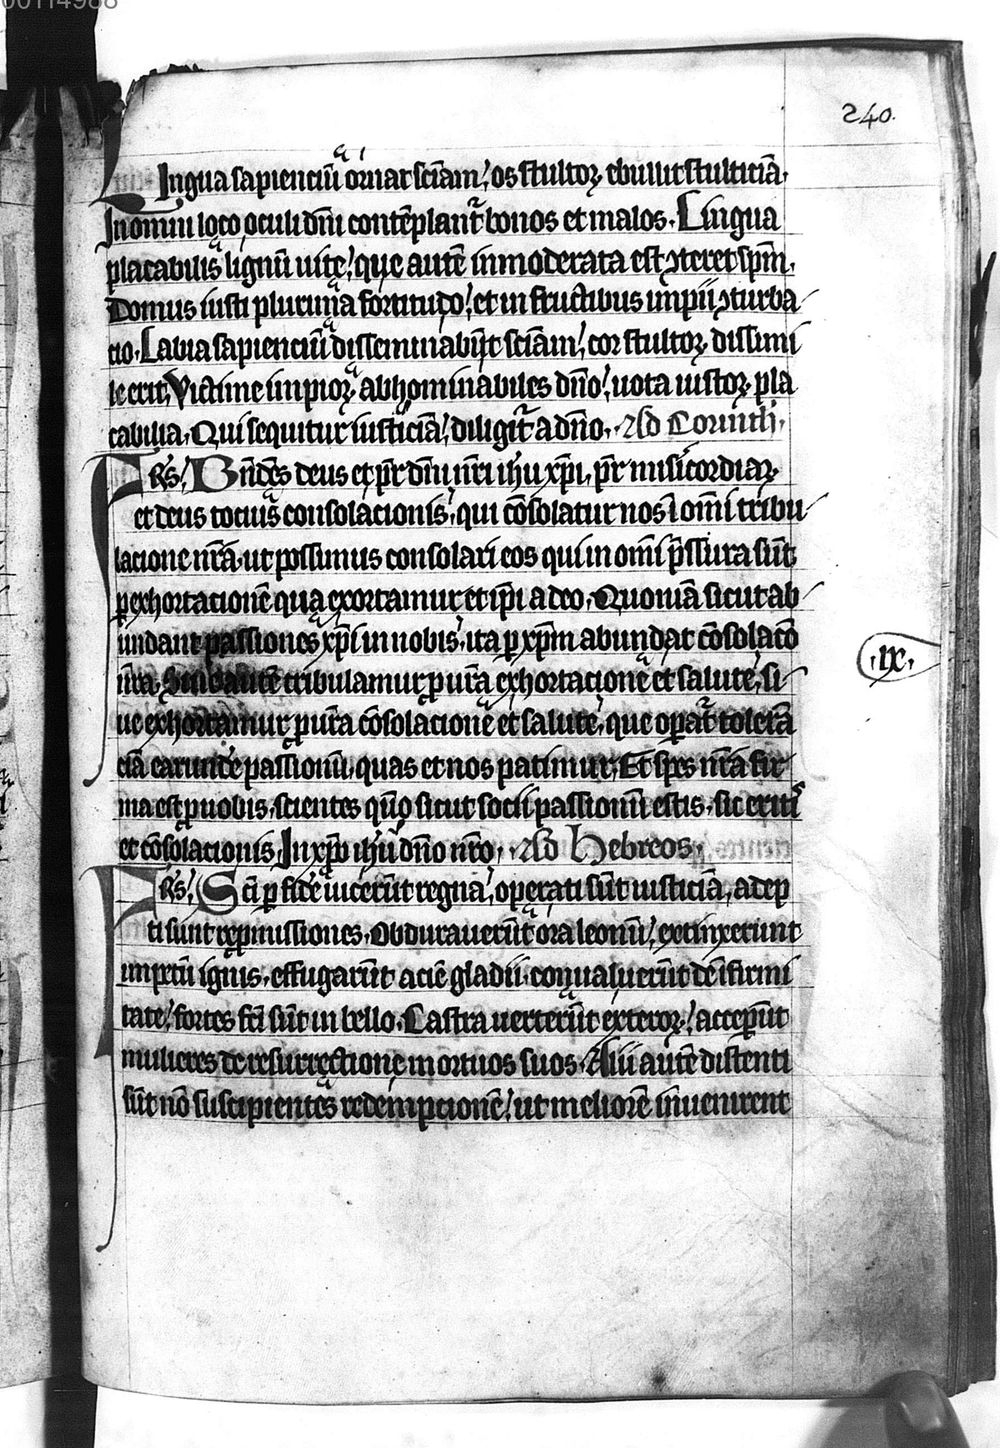 00114988
240.
Lingua sapienciũ ornat sciam, os stultoꝝ ebullit stulticiã.
In omni loco oculi dñi contẽplant᷑ bonos et malos. Lingua
placabilis lignũ uite, que autẽ inmoderata est ꝯteret spm̃.
Domus iusti plurima fortitudo, et in fructibus impii ꝯturba-
tio. Labia sapienciũ disseminabũt sciam, cor stultoꝝ dissimi
le erit. Victime impioꝝ abhominabiles dño, uota iustoꝝ pla
cabilia. Qui sequitur iusticiã, diligit᷑ a dño. Ad Corinth.
Frs̃. Bñdc̃s deus et pr̃ dñi nr̃i ihu xp̃i, pr̃ misicordiaꝝ
et deus tocius consolacionis, qui cõsolatur nos ĩ omĩ tribu-
lacione nr̃a. ut possimus consolari eos qui in omĩ p̃ssura sũt
ꝑ exhortacionẽ qua exortamur et ip̃i a deo. Quoniã sicut ab-
undant passiones xp̃i in nobis, ita ꝑ xp̃m abundat cõsolacõ
nr̃a. Siue autẽ tribulamur ꝓ ur̃a exhortacionẽ et salutẽ, si-
ue exhortamur ꝓ ur̃a cõsolacionẽ et salutẽ, que oꝑat᷑ tolerã
ciã earundẽ passionũ, quas et nos patimur. Et spes nr̃a fir
ma est ꝓ uobis. scientes qm̃ sicut socii passionũ estis, sic eritis
et cõsolacionis. In xp̃o ihu dño nr̃o. Ad Hebreos.
Frs̃. Sc̃i ꝑ fidẽ uicerũt regna, operati sũt iusticiã, adep
ti sunt repmissiones. Obdurauerũt ora leonũ, extinxerunt
impetũ ignis. effugarũt aciẽ gladii. conualuerũt dẽ ĩfirmi
tate, fortes fc̃i sũt in bello. Castra uerterũt exteroꝝ, acceꝑũt
mulieres de resurrectione mortuos suos. Alii autẽ distenti
sũt nõ suscipientes redempcionẽ, ut meliorẽ inuenirent
.ix.